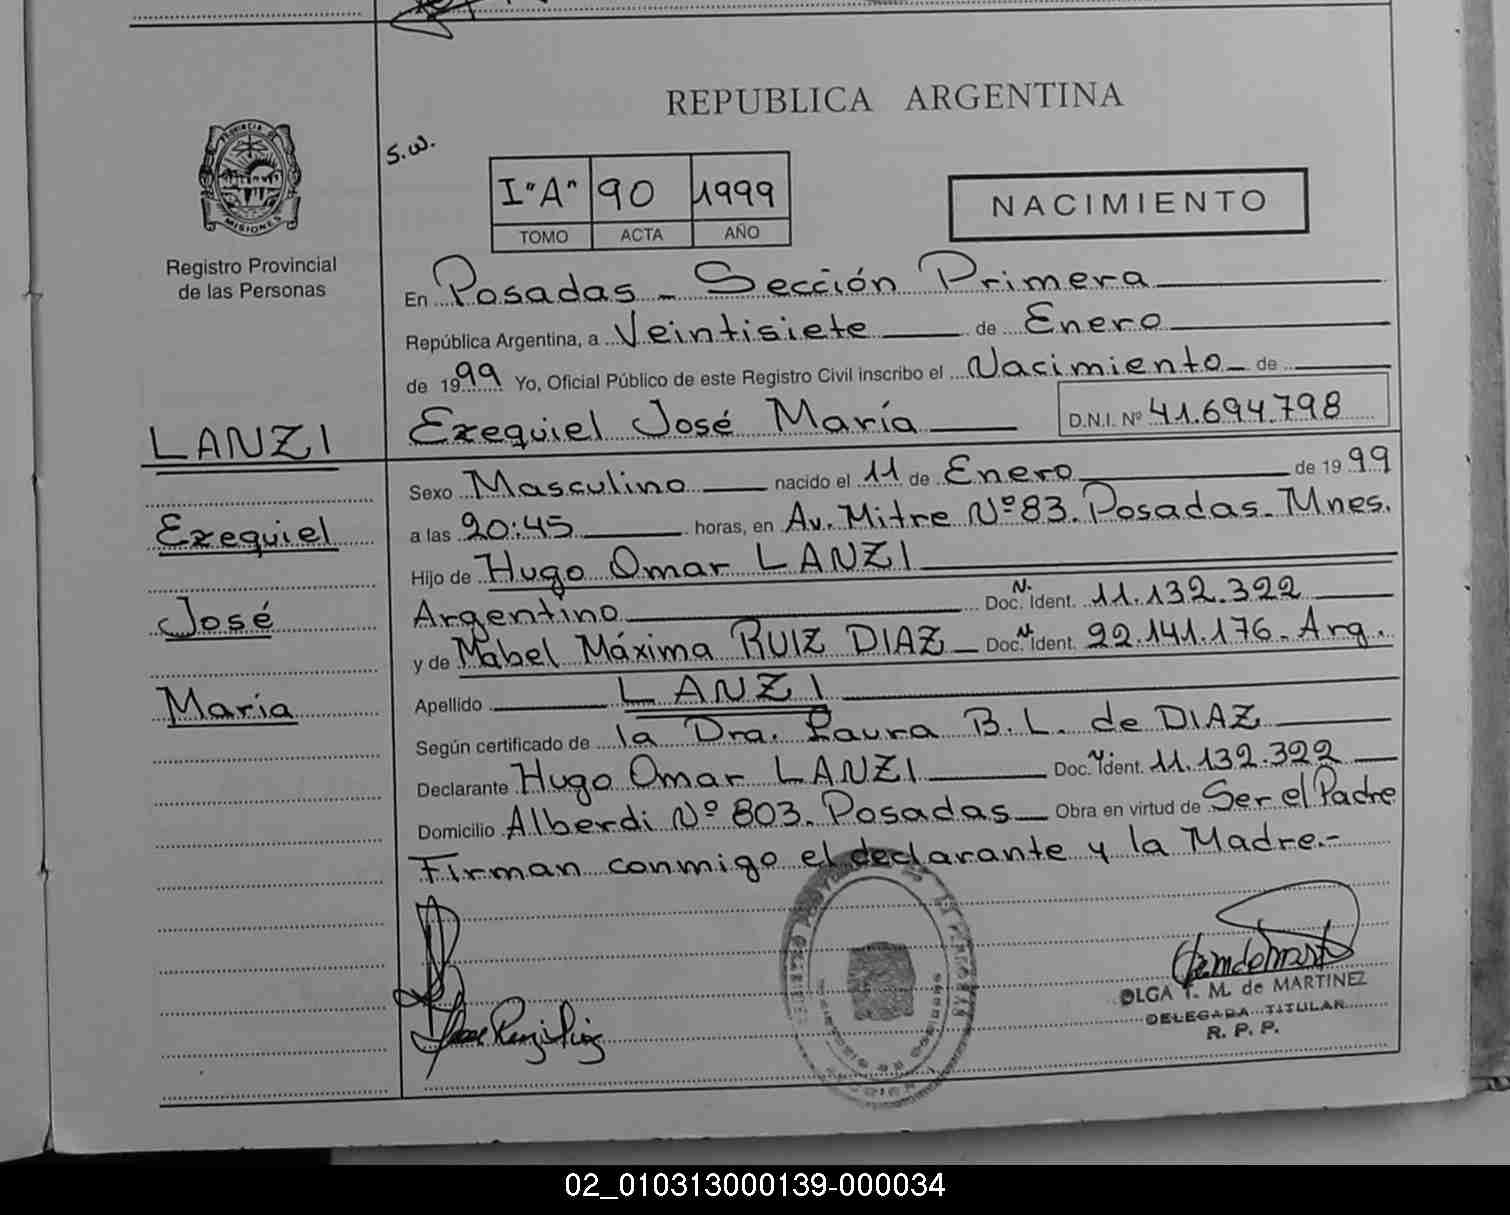 REPUBLICA ARGENTINA
PROVINCIA DE
MISIONES
Registro Provincial
de las Personas
S.W.
I "A" 90 1999
TOMO ACTA AÑO
NACIMIENTO
En Posadas - Sección Primera
República Argentina, a Veintisiete de Enero
de 1999 Yo, Oficial Público de este Registro Civil inscribo el Nacimiento de
LANZI
Ezequiel José María D.N.I. Nº 41.694.798
Sexo Masculino nacido el 11 de Enero de 19 99
Ezequiel
a las 20:45 horas, en Av. Mitre Nº 83. Posadas. Mnes.
Hijo de Hugo Omar LANZI
José
Argentino Doc. N. Ident. 11.132.322
y de Mabel Máxima RUIZ DIAZ Doc. N. Ident. 22.141.176. Arg.
María
Apellido LANZI
Según certificado de la Dra. Laura B. L. de DIAZ
Declarante Hugo Omar LANZI Doc. N. Ident. 11.132.322
Domicilio Alberdi Nº 803. Posadas Obra en virtud de Ser el Padre
Firman conmigo el declarante y la Madre.-
OLGA T. M. de MARTINEZ
DELEGADA TITULAR
R. P. P.
02_010313000139-000034